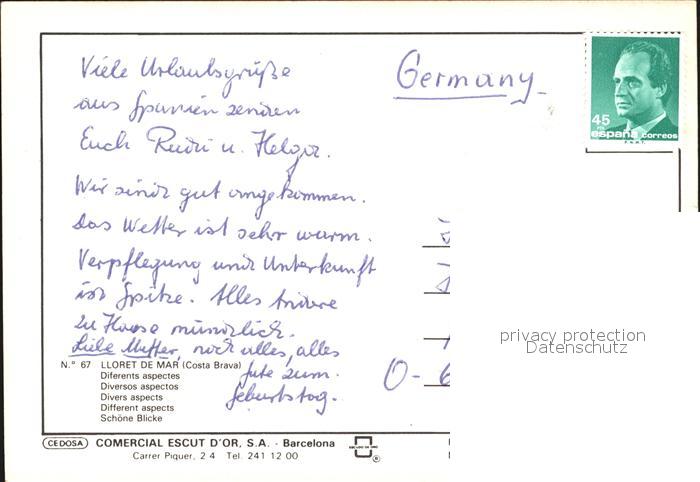 Viele Urlaubsgrüße
aus Spanien senden
Euch Rudi u. Helga.
Wir sind gut angekommen.
Das Wetter ist sehr warm.
Verpflegung und Unterkunft
ist Spitze. Alles andere
zu Hause mündlich.
Liebe Mutter, noch alles, alles
Gute zum
Geburtstag.
Germany
45
PTA
españa correos
F.N.M.T.
O-6
privacy protection
Datenschutz
N.° 67 LLORET DE MAR (Costa Brava)
Diferents aspectes
Diversos aspectos
Divers aspects
Different aspects
Schöne Blicke
CEDOSA COMERCIAL ESCUT D'OR, S.A. - Barcelona
Carrer Piquer, 2 4 Tel. 241 12 00